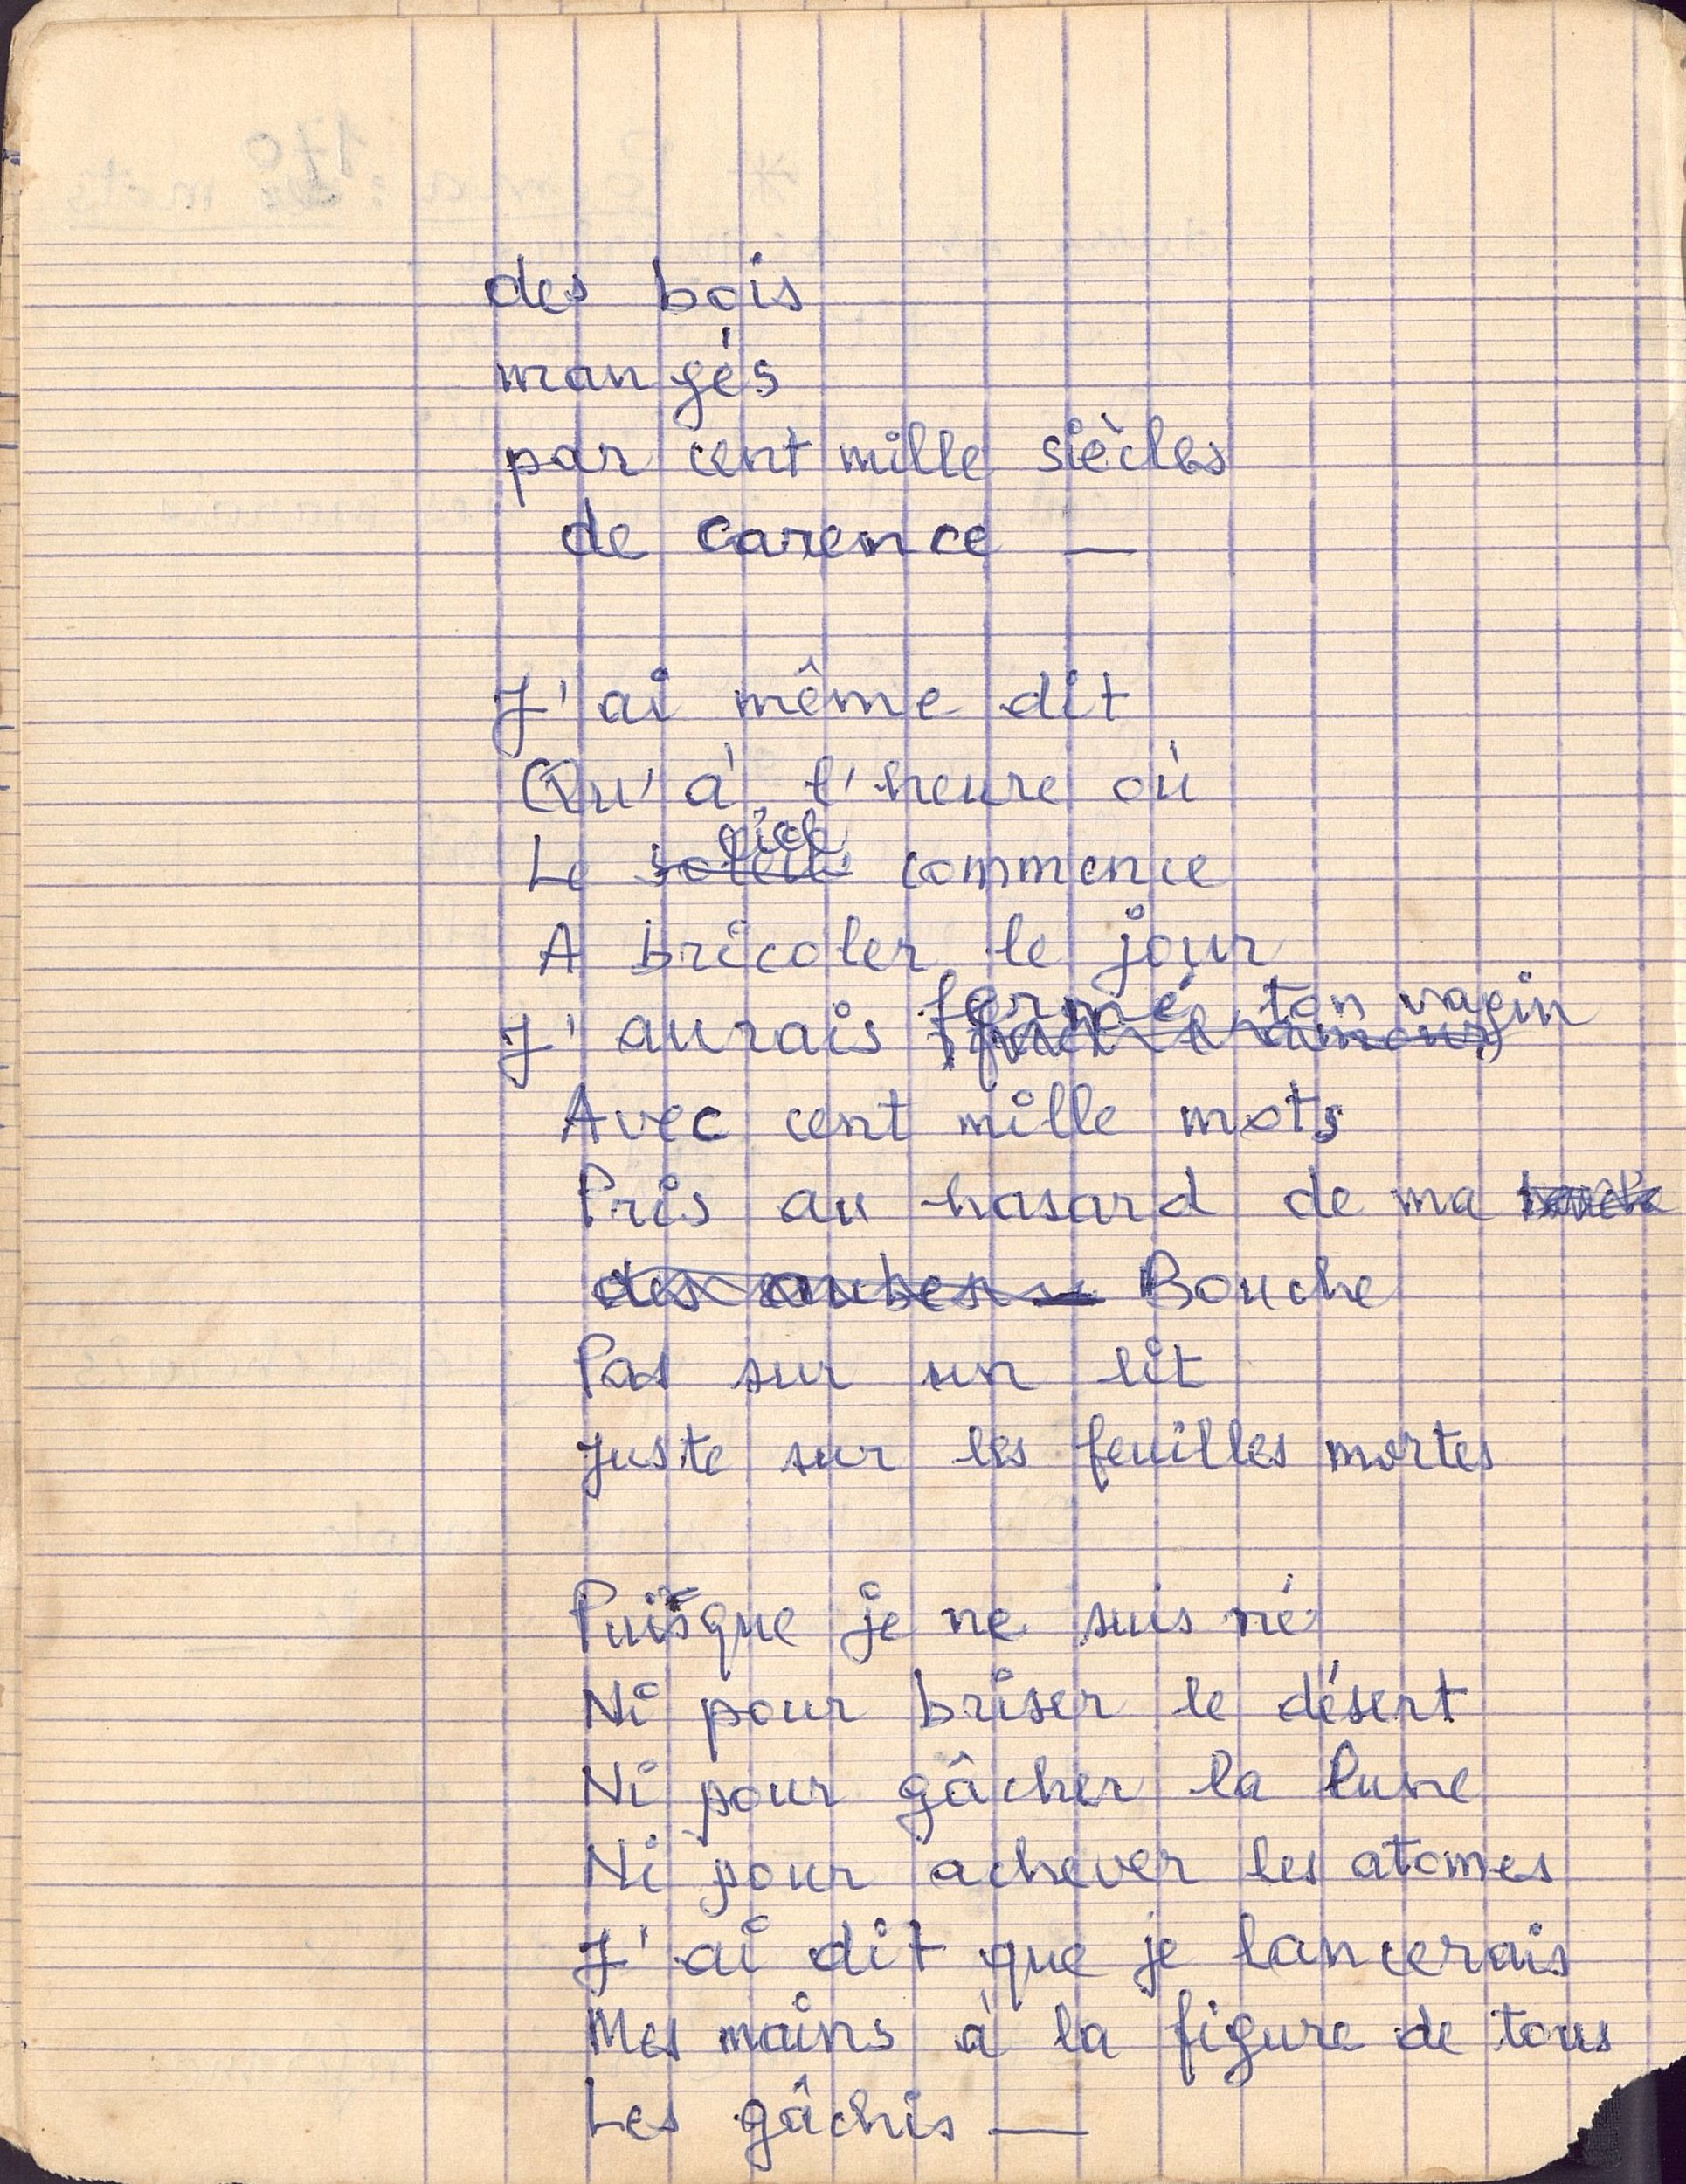 des bois
mangés
par cent mille siècles
de carence —
J'ai même dit
Qu'à l'heure où
Le soleil ciel commence
A bricoler le jour
J'aurais fermé ton vagin
Avec cent mille mots
Pris au hasard de ma bouche
des aubes — Bouche
Pas sur un lit
Juste sur les feuilles mortes
Puisque je ne suis né
Ni pour briser le désert
Ni pour gâcher la lune
Ni pour achever les atomes
J'ai dit que je lancerais
Mes mains à la figure de tous
Les gâchis —